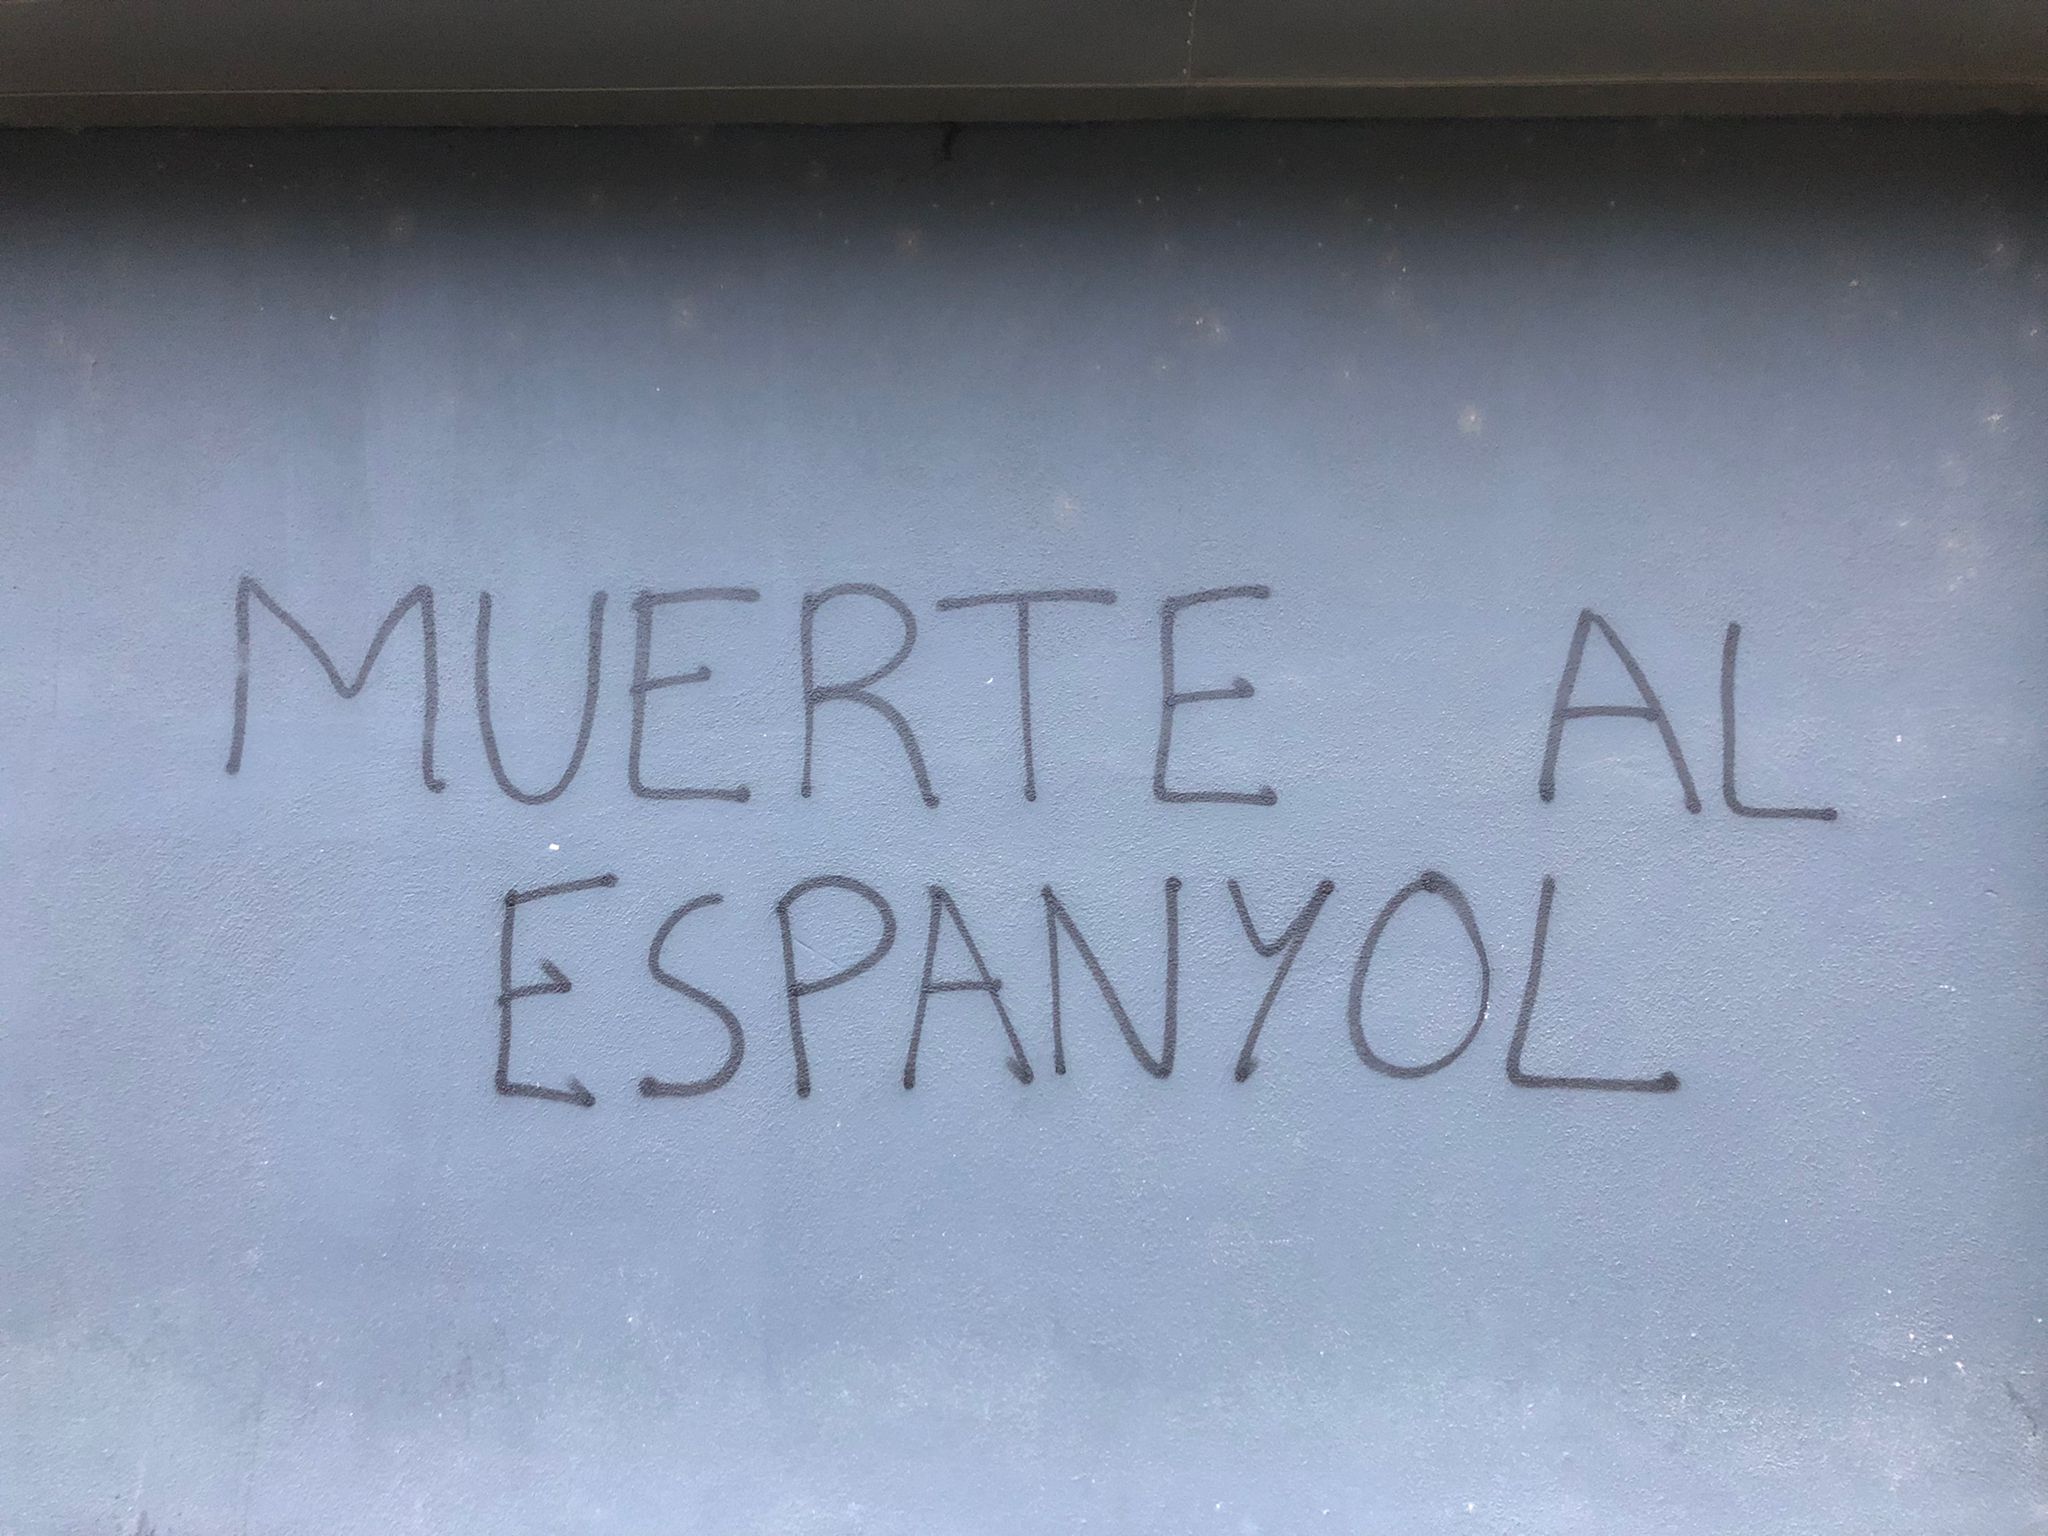 MUERTE AL
ESPANYOL